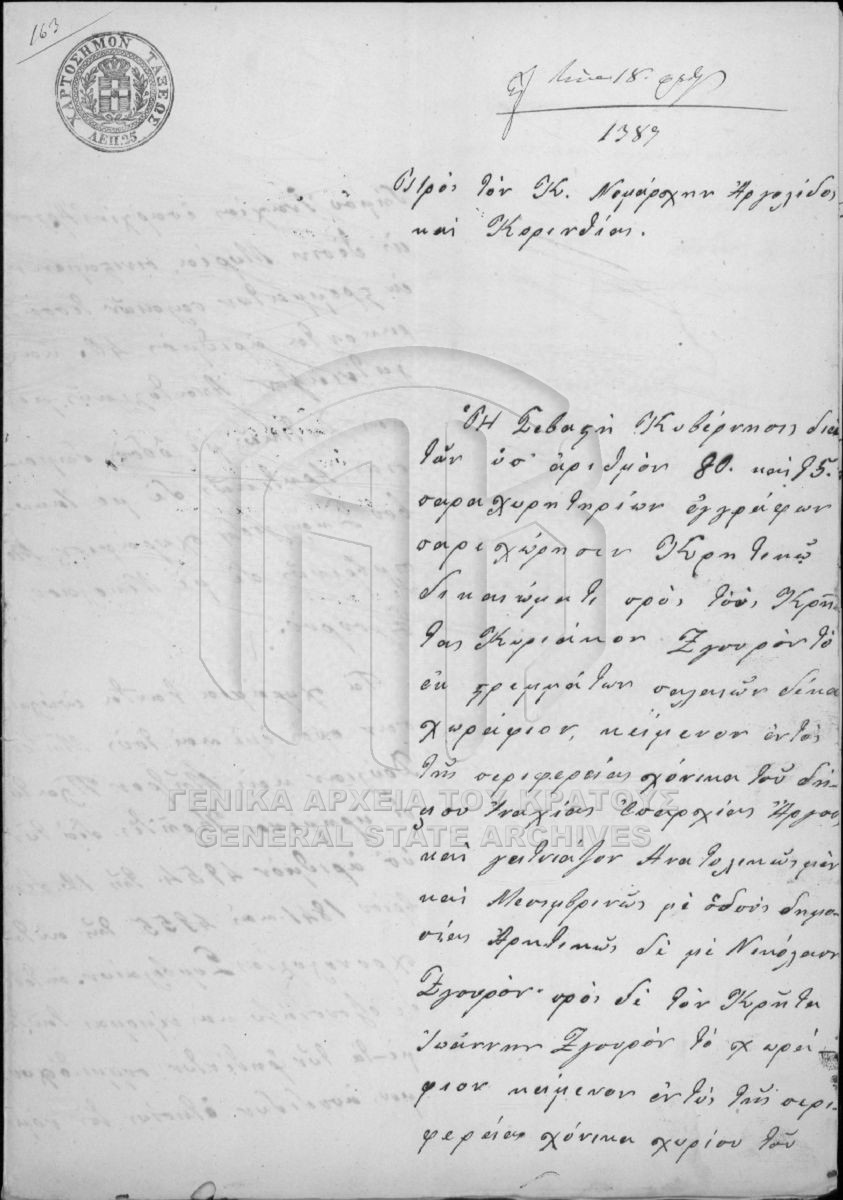 163
ΧΑΡΤΟΣΗΜΟΝ ΤΑΞΕΩΣ
ΛΕΠ. 25
18
1389
Πρὸς τὸν Κ. Νομάρχην Ἀργολίδος
καὶ Κορινθίας.
Ἡ Σεβαστὴ Κυβέρνησις διὰ
τῶν ὑπ' ἀριθμὸν 80. καὶ 75.
παραχωρητηρίων ἐγγράφων
παρεχώρησεν Κρητικῷ
δικαιώματι πρὸς τοὺς Κρῆ
τας Κυριάκον Ζγουρὸν τὸ
ἐκ στρεμμάτων παλαιῶν δέκα
χωράφιον, κείμενον ἐντὸς
τῆς περιφερείας χόνικα τοῦ δή-
μου Ἰναχίας Ἐπαρχίας Ἄργους
καὶ γειτνιάζον Ἀνατολικῶς μὲν
καὶ Μεσημβρινῶς μὲ ὁδοὺς δημο
σίας Ἀρκτικῶς δὲ μὲ Νικόλαον
Ζγουρὸν· πρὸς δὲ τὸν Κρῆτα
Ἰωάννην Ζγουρὸν τὸ χωρά-
φιον κείμενον ἐντὸς τῆς περι-
φερείας χόνικα χωρίου τοῦ
ΓΕΝΙΚΑ ΑΡΧΕΙΑ ΤΟΥ ΚΡΑΤΟΥΣ
GENERAL STATE ARCHIVES